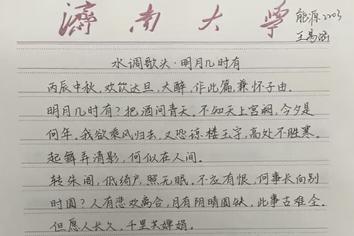 济南大学
能源2203
水调歌头·明月几时有
丙辰中秋,欢饮达旦,大醉,作此篇,兼怀子由。
明月几时有?把酒问青天。不知天上宫阙,今夕是
何年。我欲乘风归去,又恐琼楼玉宇,高处不胜寒。
起舞弄清影,何似在人间。
转朱阁,低绮户,照无眠。不应有恨,何事长向别
时圆?人有悲欢离合,月有阴晴圆缺,此事古难全。
但愿人长久,千里共婵娟。